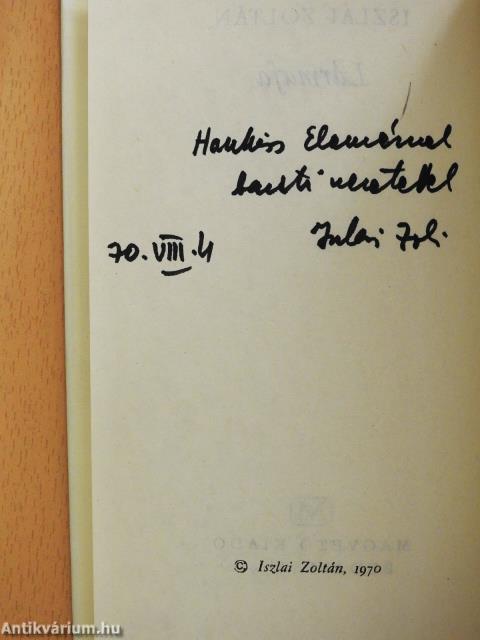 ISZLAI ZOLTÁN
Lármafa
Hankiss Elemérnek
baráti szeretettel
Iszlai Zoli
70. VIII. 4
MAGVETŐ KIADÓ
© Iszlai Zoltán, 1970
Antikvárium.hu